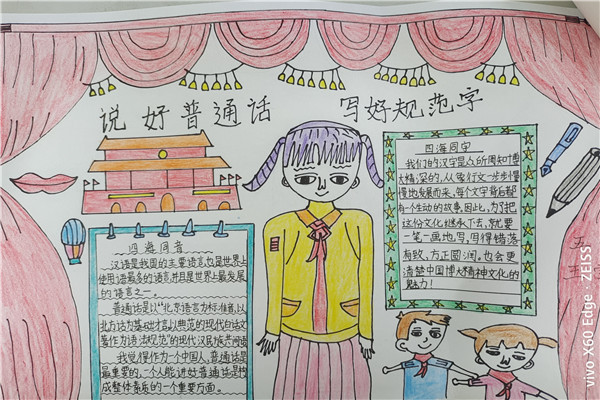 说好普通话 写好规范字
四海同音
汉语是我国的主要语言,也是世界上
使用语最多的语言,并且是世界上最发展
的语言之一。
普通话是以"北京语言为标准音,以
北方话为基础方言,以典范的现代白话文
著作为语法规范"的现代汉民族共同语
我觉得作为一个中国人,普通话是
最重要的,一个人能讲好普通话是构
成整体素质的一个重要方面。
四海同字
我们的汉字是众所周知博
大精深的,人类行文一步步慢
慢地发展而来,每个文字背后都
有一个生动的故事,因此,为了把
这份文化继承下去,就要
一笔一画地写,写得错落
有致、方正圆润。也会更
清楚中国博大精神文化的
魅力!
五
vivo X60 Edge · ZEISS